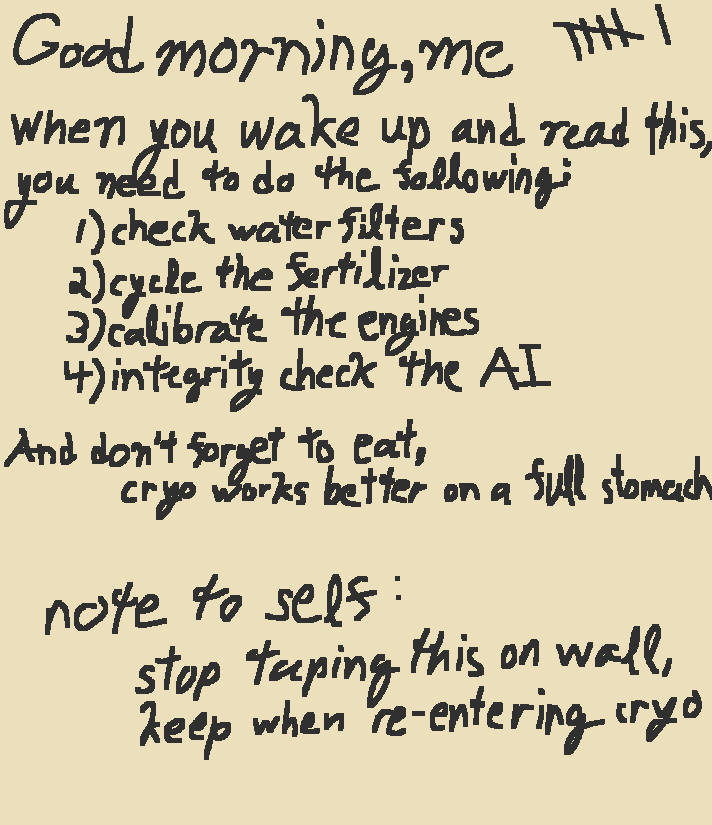 Good morning, me
when you wake up and read this,
you need to do the following:
1) check water filters
2) cycle the fertilizer
3) calibrate the engines
4) integrity check the AI
And don't forget to eat,
cryo works better on a full stomach
note to self:
stop taping this on wall,
keep when re-entering cryo